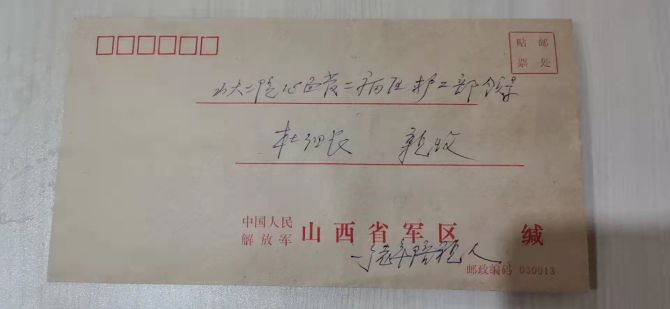 贴 邮
票 处
山大二院心血管二病区护工部领导
杜组长 亲收
中国人民
解放军 山西省军区 缄
一
人
邮政编码 030013